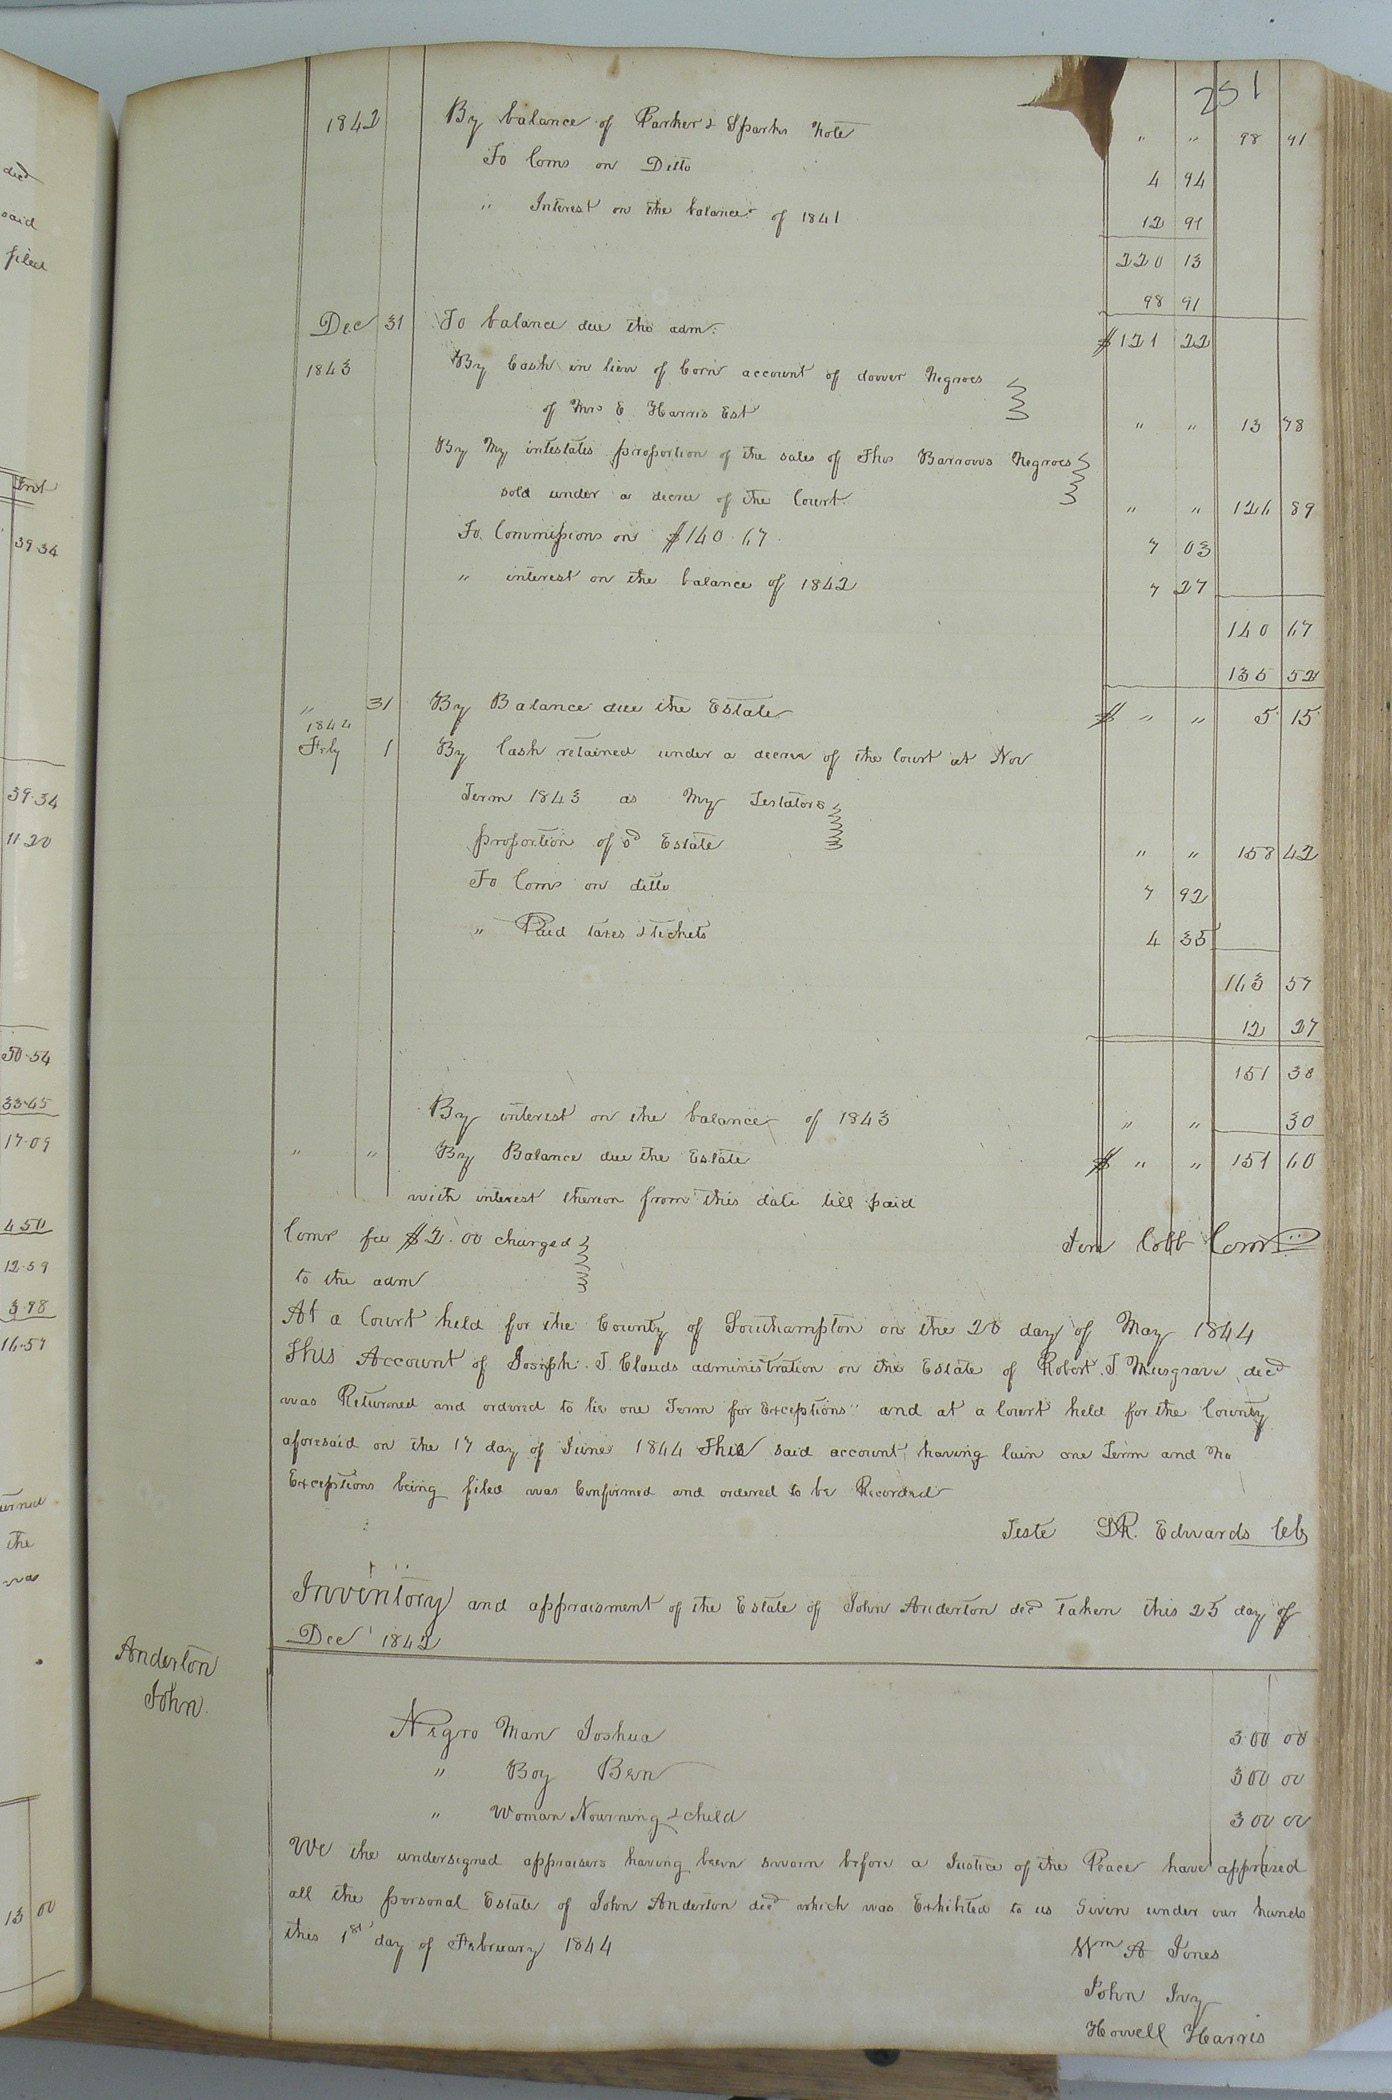 251
1842 By balance of Parker & Sparks Note " " 98 91
To Coms on Ditto 4 94
" Interest on the balance of 1841 12 91
220 13
98 91
Dec 31 To balance due the adm. $121 22
1843 By Cash in lieu of Corn account of dower Negroes
of Mrs E Harris Est " " 13 78
By My intestates proportion of the sales of Thos Barrows Negroes
sold under a decree of the Court " " 126 89
To Commissions on $140.67 7 03
" interest on the balance of 1842 7 27
140 67
135 52
" 31 By Balance due the Estate $ " " 5 15
1844
Feby 1 By Cash retained under a decree of the Court at Nov
Term 1843 as My Testators
proportion of sd Estate " " 158 42
To Coms on ditto 7 92
" Paid taxes & tickets 4 35
163 57
12 27
151 30
By interest on the balance of 1843 " " 30
" " By Balance due the Estate $ " " 151 60
with interest thereon from this date till paid
Coms fee $2.00 charged Jere Cobb Comr
to the adm
At a Court held for the County of Southampton on the 20 day of May 1844
This Account of Joseph. T. Clauds administration on the Estate of Robert. J. Musgrave decd
was Returned and ordered to lie one Term for Exceptions and at a Court held for the County
aforesaid on the 17 day of June 1844 This said account, having lain one Term and No
Exceptions being filed was Confirmed and ordered to be Recorded
Teste LR. Edwards Clk
Inventory and appraisment of the Estate of John Anderton decd taken this 25 day of
Dec 1842
Anderton
John.
Negro Man Joshua 300 00
" Boy Ben 300 00
" Woman Nourning & child 300 00
We the undersigned appraisers having been sworn before a Justice of the Peace have apprized
all the personal Estate of John Anderton decd which was Exhibited to us Given under our hands
this 1st day of February 1844 Wm A Jones
John Ivy
Howell Harris
decd
said
filed
Inst
39.34
39.34
11.20
50.54
33.45
17.09
4 50
12.59
3.98
16.57
the
was
13 00